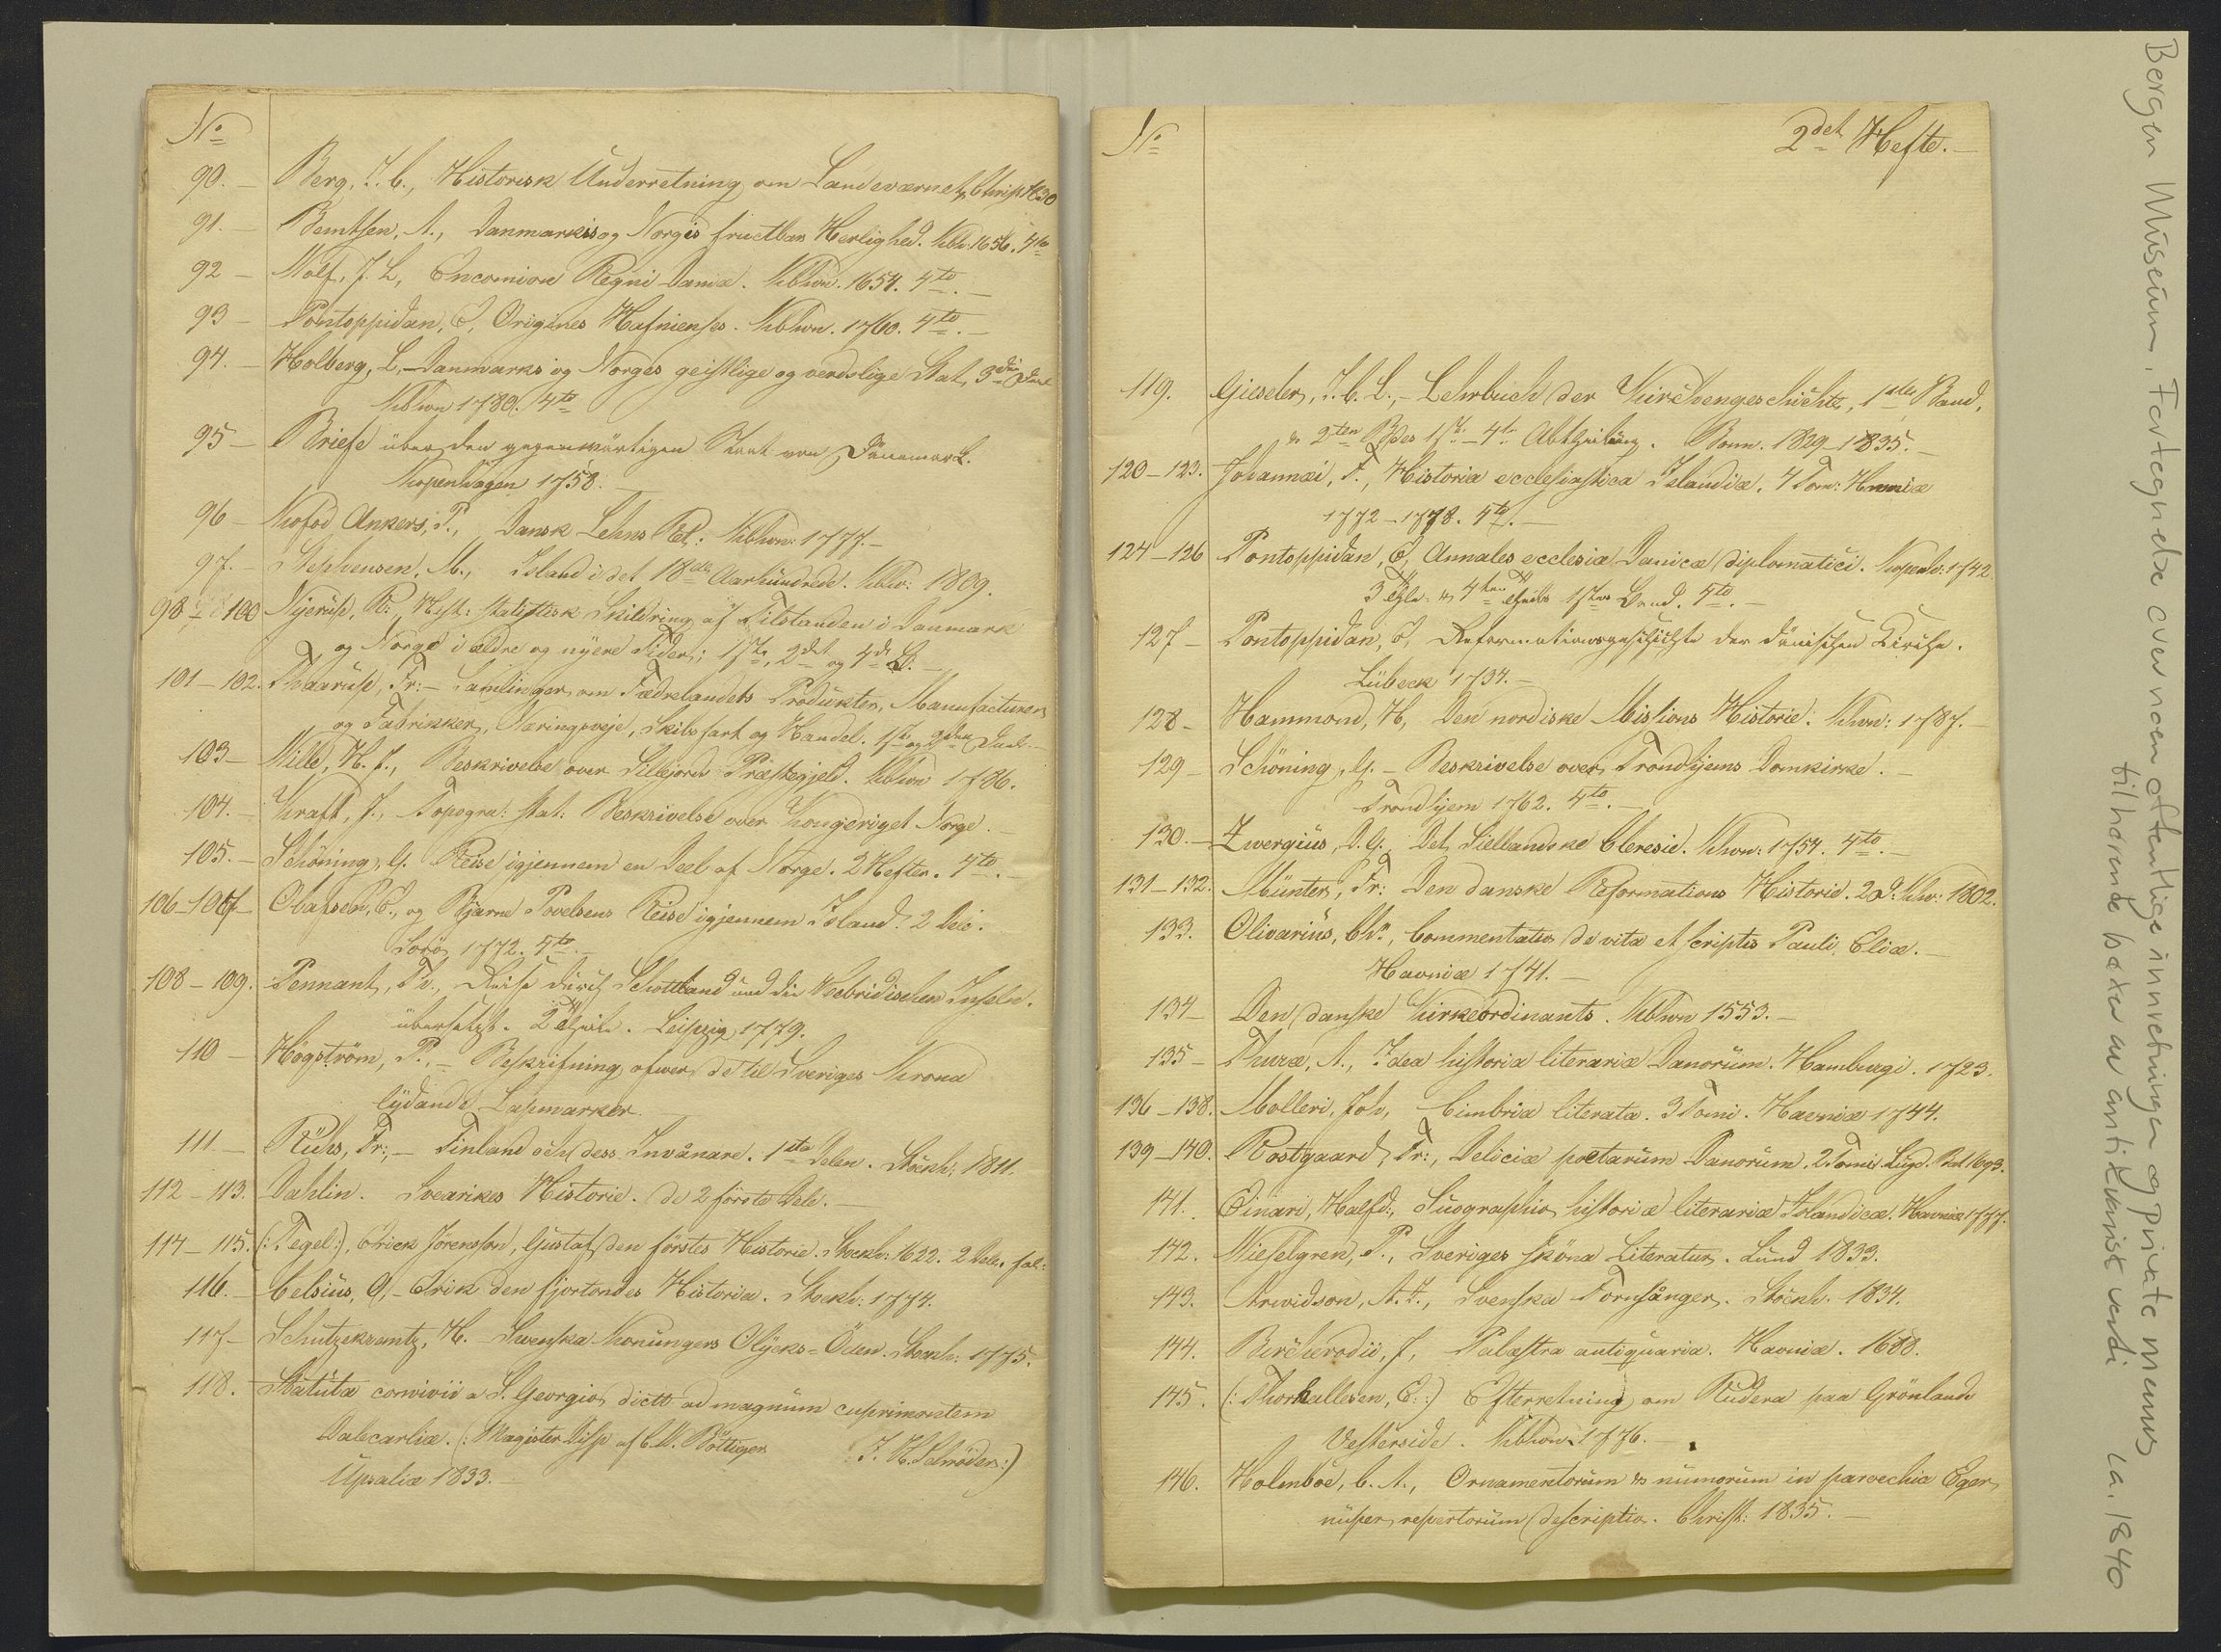 No
90. — Berg, J. C., Historisk Underretning om Landeværnet, Christ. 1830
91. — Berntsen, A., Danmarkis og Norgis fructbar Herlighed. Kbh. 1656. 4to
92 — Wolf, J. L., Encomion Regni Daniæ. Kbhvn. 1654. 4to. —
93 — Pontoppidan, E., Origines Hafnienses. Kbhvn. 1760. 4to. —
94. — Holberg, L. — Danmarks og Norges geistlige og verdslige Stat, 3die
Kbhvn 1780. 4to
95 — Briefe über den gegenwärtigen Staat von Dännemark.
Kopenhagen 1758. —
96 — Kofod Ankers, P., Dansk Lehns Ret: Kbhvn: 1777. —
97. — Stephensen, M., Island i det 18de Aarhundrede. Kbhv: 1809.
98 — 100 Nyerup, R: Hist: statistisk Skildring af Tilstanden i Danmark
og Norge i ældre og nyere Tider; 1ste, 2det og 4de B. —
101 — 102. Thaarup, Fr: — Samlinger om Fædrelandets Produkter, Manufacturer
og Fabrikker, Næringsveje, Skibsfart og Handel. 1ste og 2den Deel. —
103 — Wille, H. J., Beskrivelse over Sillejords Præstegjeld. Kbhvn 1786.
104. — Kraft, J., Topogra: stat: Beskrivelse over Kongeriget Norge. —
105. — Schöning, G. Reise igjennem en Deel af Norge. 2 Hefter. 4to. —
106 — 107 — Olafsen, E., og Bjarne Povelsens Reise igjennem Island. 2 Dele.
Sorö 1772. 4to. —
108 — 109. Pennant, Th., Reise durch Schottland und die Hebridischen Inseln.
übersetzt. 2 Theile. Leipzig 1779.
110 — Högström, P., — Beskrifning öfwer de til Sveriges Krona
lydande Lapmarker. —
111. — Rühs, Fr:, — Finland och dess Invånare. 1sta Delen. Stockh: 1811.
112 — 113. Dahlin. Svearikes Historie. de 2 förste Dele. —
114 — 115. (: Tegel:), Erick Jöransson, Gustaf den förstes Historie. Stockh: 1622. 2 Dele. fol:
116. — Celsius, O, — Erik den fjortondes Historia. Stockh: 1774.
117 — Schützekrantz, H. Swenska Konungers Olycks-Öden. Stockh: 1775.
118. — Statuta convivii a S. Georgio dicti ad magnum cuprimontem
Dalecarliæ. (: Magister Disp af C. W. Böttiger J. H. Schröder:)
Upsaliæ 1833.
No
2det Hefte. —
119. Gieseler, J. C. L., — Lehrbuch der Kirchengeschichte, 1ster Band,
& 2ten Bdes 1ste — 4te Abtheilung. Bonn. 1829 — 1835. —
120 — 123. Johannæi, F., Historia ecclesiastica Islandiæ. 4 Tom: Havniæ
1772 — 1778. 4to. —
124 — 126 Pontoppidan, E, Annales ecclesiæ Danicæ diplomatici. Kopenh: 1742.
3 Thle & 4ten Theils 1ster Band. 4to. —
127 — Pontoppidan, E, Reformationsgeschichte der dänischen Kirche.
Lübeck 1734. —
128 — Hammond, H, Den nordiske Missions Historie. Khvn: 1787. —
129 — Schöning, G. — Beskrivelse over Trondhjems Domkirke. —
Trondhjem 1762. 4to. —
130. — Zwergius, D. G., Det Siellandske Cleresie. Khvn: 1754. 4to. —
131 — 132. Münter, Fr: Den danske Reformations Historie. 2 D: Khv: 1802.
133. Olivarius, Chr., Commentatio de vita et scriptis Pauli Eliæ. —
Havniæ 1741. —
134 — Den danske Kirkeordinants. Kbhvn 1553. —
135 — Thuræ, A., Idea historiæ literariæ Danorum. Hamburgi. 1723.
136 — 138. Molleri, Joh, Cimbria literata. 3 Tomi. Havniæ 1744.
139 — 140. Rostgaard, Fr:, Deliciæ poetarum Danorum. 2 Tomi. Lugd. Bat 1693.
141. Einari, Halfd:, Sciographia historiæ literariæ Islandicæ. Havniæ 1777.
142. Wieselgren, P., Sveriges sköna Literatur. Lund 1833.
143. Arwidson, A. I., Svenska Fornsånger. Stockh. 1834.
144. Bircherodii, J, Palæstra antiquaria. Havniæ. 1688.
145. (: Thorhallesen, E::) Efterretning om Rudera paa Grönlands
Vesterside. Kbhvn 1776. —
146. Holmboe, C. A., Ornamentorum & numorum in paroechia Eger
nuper repertorum descriptio. Christ: 1835. —
Bergen Museum, Fortegnelse over noen offentlige innretninger og private menns
tilhørende bøker av antikvarisk verdi ca. 1840